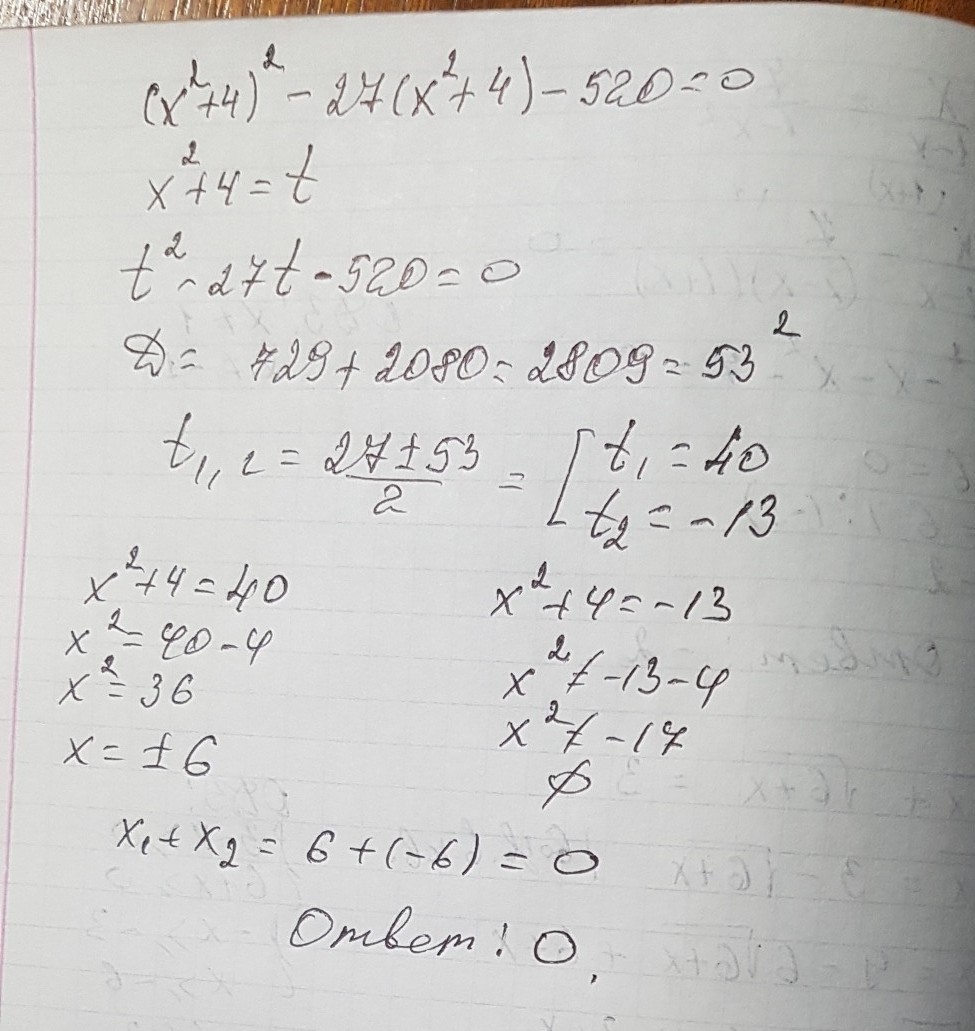 (x²+4)² - 27(x²+4) - 520 = 0
x²+4 = t
t² - 27t - 520 = 0
D = 729 + 2080 = 2809 = 53²
t₁,₂ = (27 ± 53)/2 = [ t₁ = 40
t₂ = -13
x²+4 = 40
x² = 40 - 4
x² = 36
x = ±6
x²+4 = -13
x² ≠ -13 - 4
x² ≠ -17
∅
x₁ + x₂ = 6 + (-6) = 0
Ответ: 0.